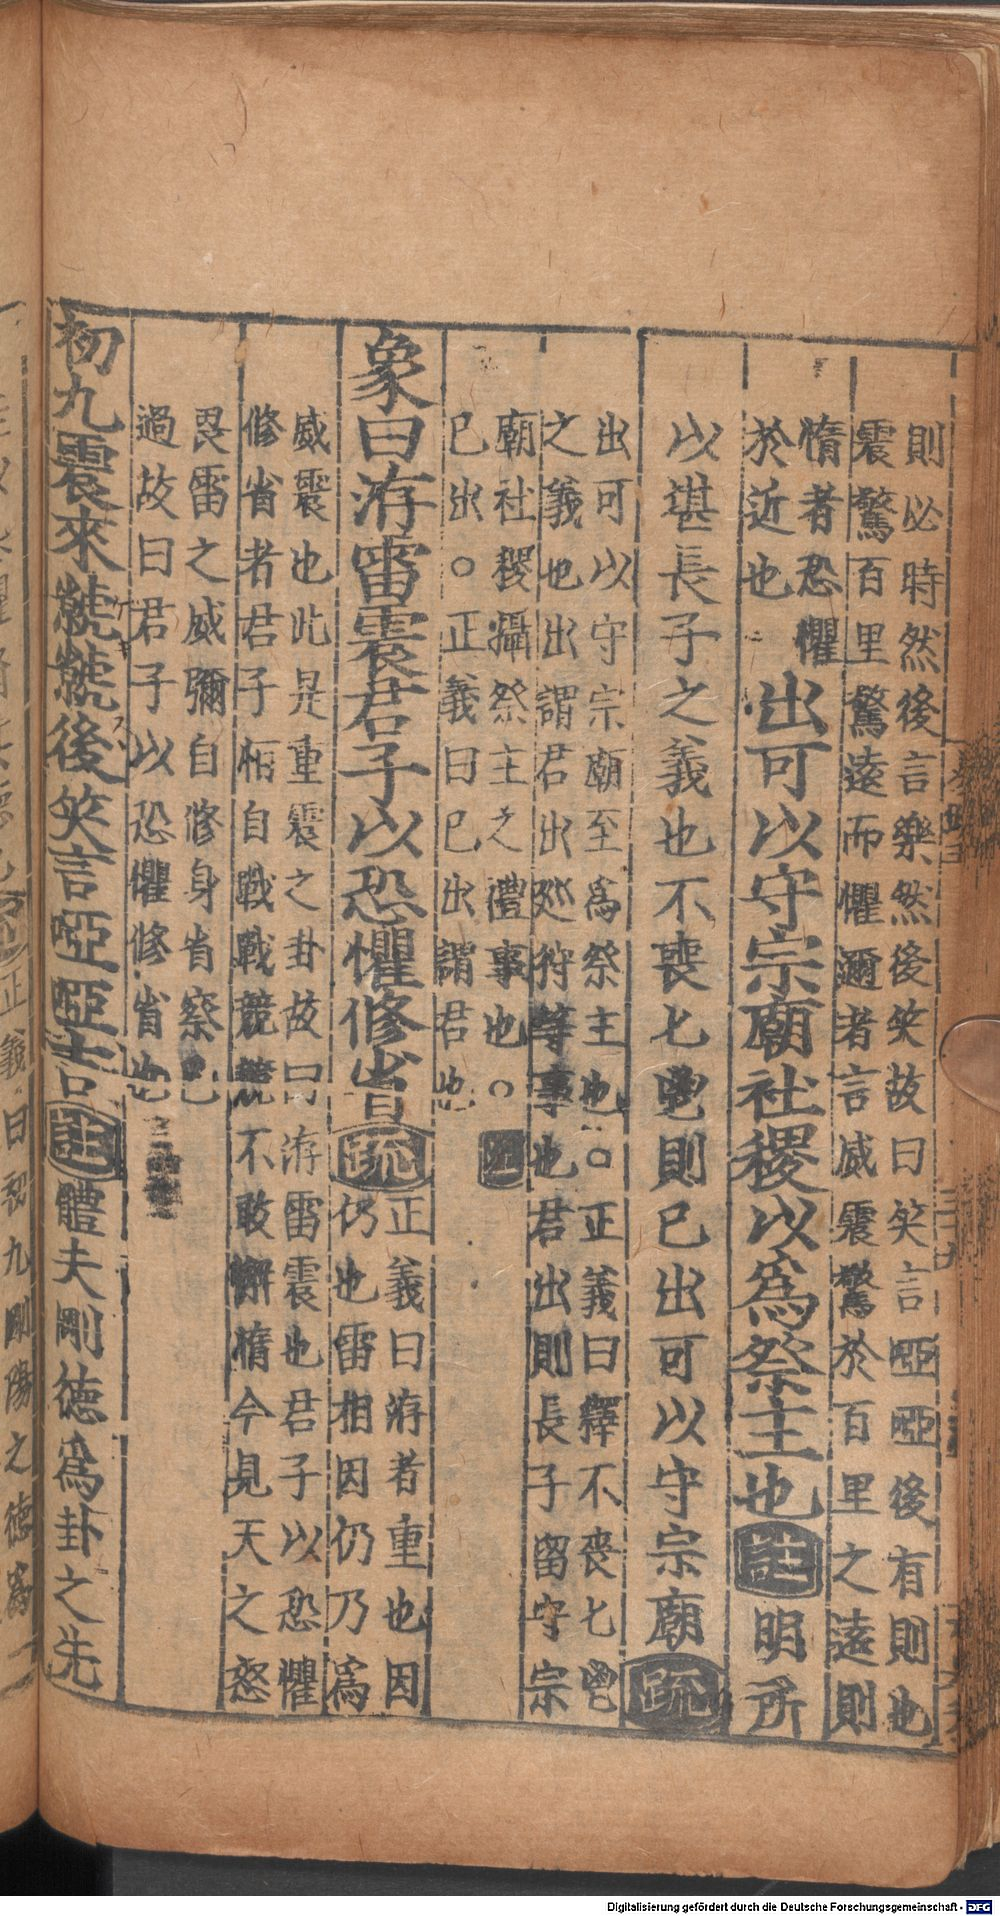 則必時然後言樂然後笑故曰笑言啞啞後有則也
震驚百里驚遠而懼邇者言威震驚於百里之遠則
惰者恐懼
於近也
出可以守宗廟社稷以為祭主也註明所
以堪長子之義也不喪匕鬯則已出可以守宗廟疏
出可以守宗廟至為祭主也○正義曰釋不喪匕鬯
之義也出謂君出巡狩等事也君出則長子留守宗
廟社稷攝祭主之禮事也○註
已出○正義曰已出謂君也
象曰洊雷震君子以恐懼修省疏
正義曰洊者重也因
仍也雷相因仍乃為
威震也此是重震之卦故曰洊雷震也君子以恐懼
修省者君子恒自戰戰兢兢不敢懈惰今見天之怒
畏雷之威彌自修身省察己
過故曰君子以恐懼修省也
初九震來虩虩後笑言啞啞吉註體夫剛德為卦之先
正義曰初九剛陽之德為
Digitalisierung gefördert durch die Deutsche Forschungsgemeinschaft - DFG